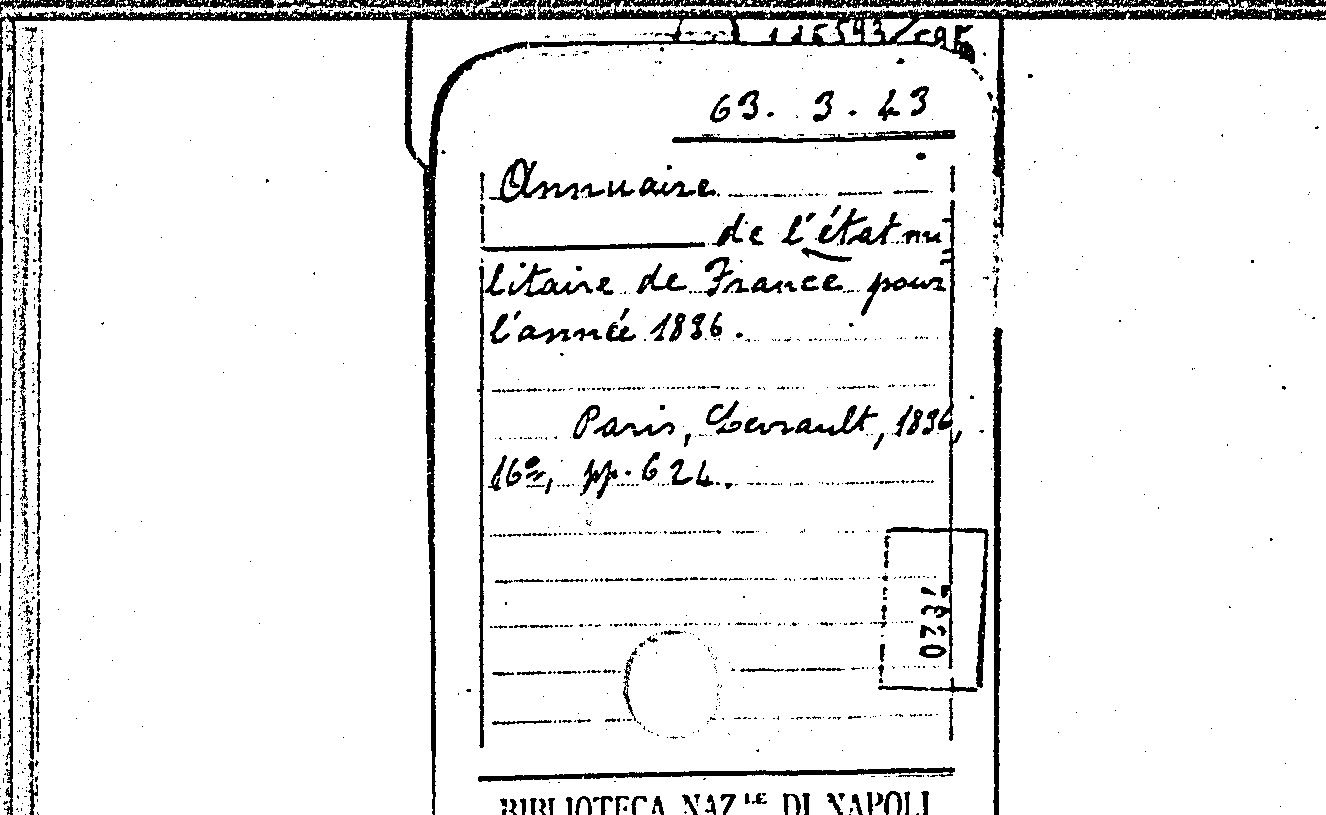 63. 3. 43
Annuaire
de l'état mi
litaire de France pour
l'année 1836.
Paris, Levrault, 1836,
16º, pp. 624.
BIBLIOTECA NAZ.LE DI NAPOLI